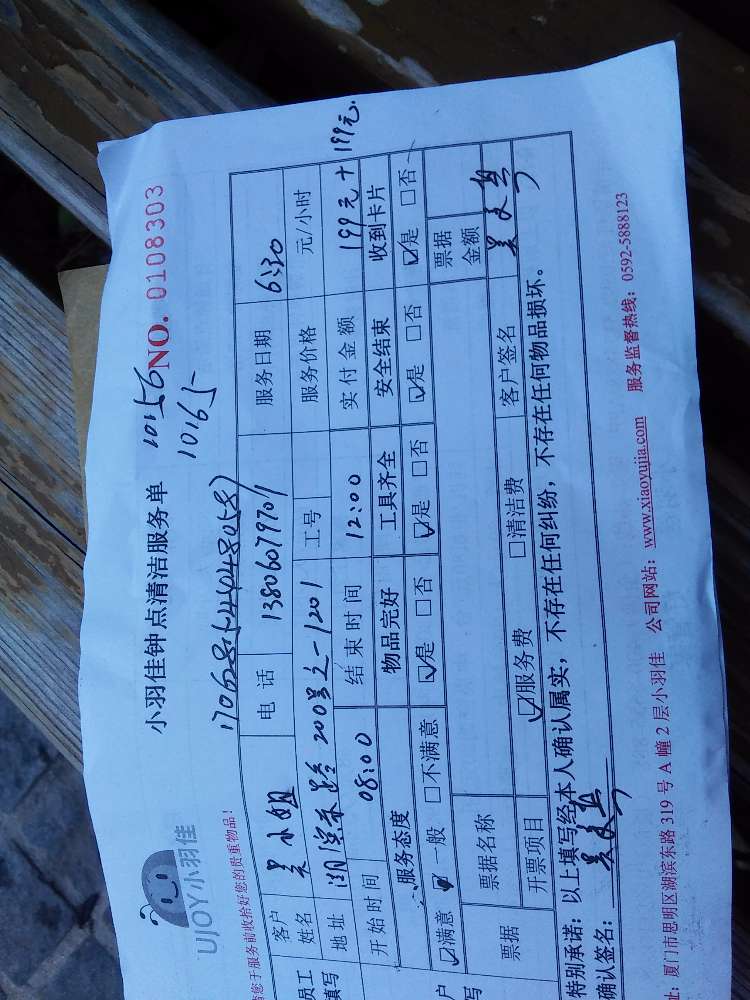 UJOY小羽佳
小羽佳钟点清洁服务单 10156 NO. 0108303
10165
您于服务前收拾好您的贵重物品!
客户姓名 吴小姐 电话 13806079701 服务日期 6:30
地址 湖滨东路200号之一1201 工号 服务价格 元/小时
开始时间 08:00 结束时间 12:00 实付金额 199元+199元.
服务态度 物品完好 工具齐全 安全结束 收到卡片
☑满意 □一般 □不满意 ☑是 □否 ☑是 □否 ☑是 □否 ☑是 □否
票据 票据名称 票据金额
开票项目 ☑服务费 □清洁费 客户签名
特别承诺:以上填写经本人确认属实,不存在任何纠纷,不存在任何物品损坏。
确认签名:
址:厦门市思明区湖滨东路 319 号 A 幢 2 层小羽佳 公司网站:www.xiaoyujia.com 服务监督热线:0592-5888123